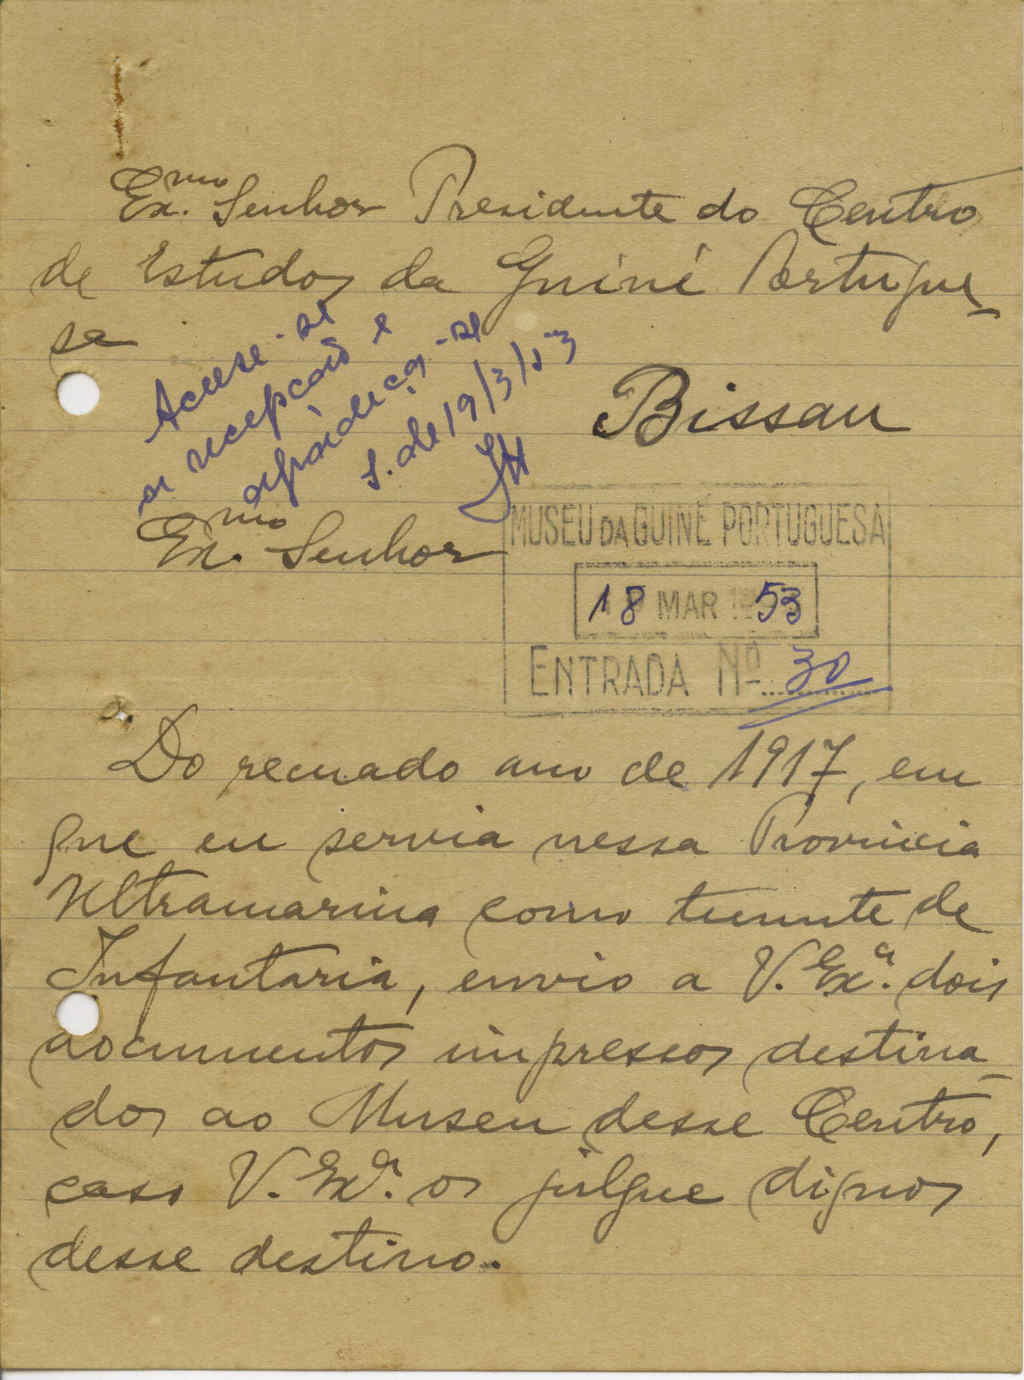 Exmo. Senhor Presidente do Centro
de Estudos da Guiné Portugue-
sa
Acuse-se
a recepção e
agradeça-se
S. de 19/3/53
Bissau
Exmo. Senhor
MUSEU DA GUINÉ PORTUGUESA
18 MAR 53
ENTRADA Nº 30
Do recuado ano de 1917, em
que eu servia nessa Provincia
Ultramarina como tenente de
Infantaria, envio a V. Exª. dois
documentos impressos destina-
dos ao Museu desse Centro,
caso V. Exª. os julgue dignos
desse destino.